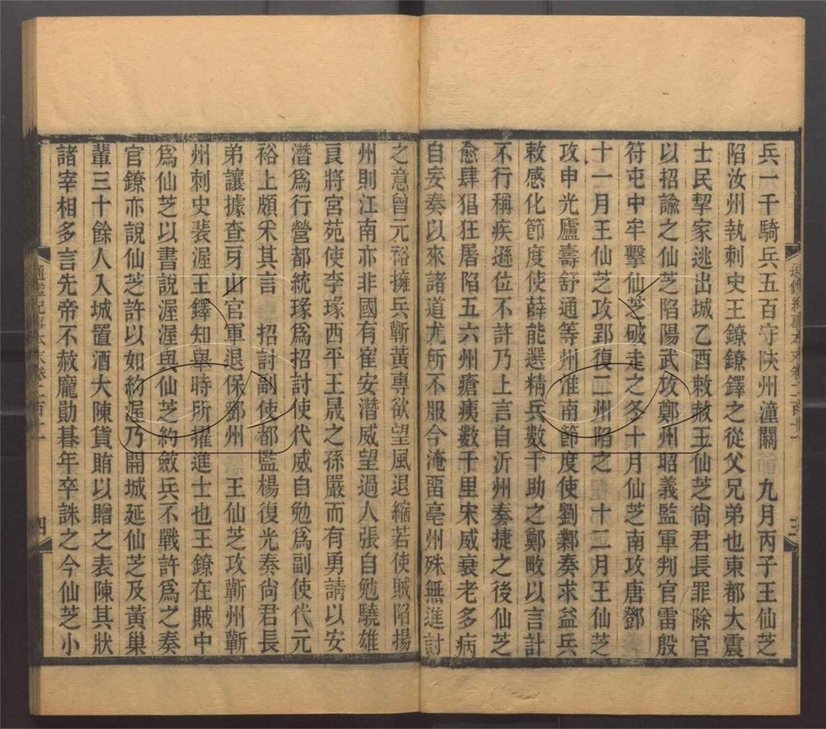 兵一千騎兵五百守陝州潼關　九月丙子王仙芝
陷汝州執刺史王鐐鐐鐸之從父兄弟也東都大震
士民挈家逃出城乙酉敕赦王仙芝尚君長罪除官
以招諭之仙芝陷陽武攻鄭州昭義監軍判官雷殷
符屯中牟擊仙芝破走之冬十月仙芝南攻唐鄧
十一月王仙芝攻郢復二州陷之　十二月王仙芝
攻申光廬壽舒通等州淮南節度使劉鄴奏求益兵
敕感化節度使薛能選精兵數千助之鄭畋以言計
不行稱疾遜位不許乃上言自沂州奏捷之後仙芝
愈肆猖狂屠陷五六州瘡痍數千里宋威衰老多病
自妄奏以來諸道尤所不服今淹留亳州殊無進討
之意曾元裕擁兵蘄黃專欲望風退縮若使賊陷揚
州則江南亦非國有崔安潛威望過人張自勉驍雄
良將宮苑使李瑑西平王晟之孫嚴而有勇請以安
潛爲行營都統瑑爲招討使代威自勉爲副使代元
裕上頗采其言　招討副使都監楊復光奏尚君長
弟讓據查牙山官軍退保鄧州　王仙芝攻蘄州蘄
州刺史裴渥王鐸知舉時所擢進士也王鐐在賊中
爲仙芝以書說渥渥與仙芝約斂兵不戰許爲之奏
官鐐亦說仙芝許以如約渥乃開城延仙芝及黃巢
輩三十餘人入城置酒大陳貨賄以贈之表陳其狀
諸宰相多言先帝不赦龐勛朞年卒誅之今仙芝小